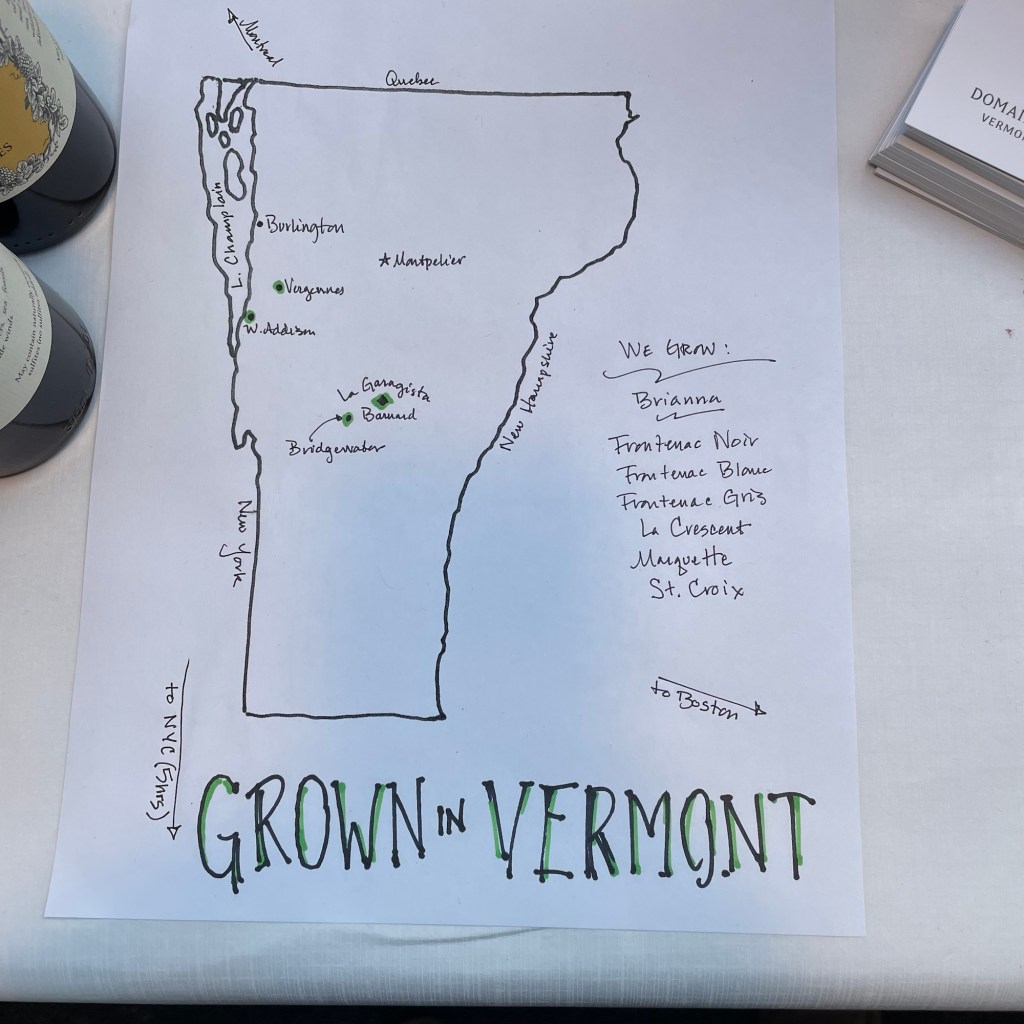 Montreal
Quebec
L. Champlain
Burlington
Montpelier
Vergennes
W. Addison
La Garagista
Barnard
Bridgewater
New York
New Hampshire
WE GROW:
Brianna
Frontenac Noir
Frontenac Blanc
Frontenac Gris
La Crescent
Marquette
St. Croix
to NYC (5hrs)
to Boston
GROWN IN VERMONT
May contain naturally
DOMAI
VERMO